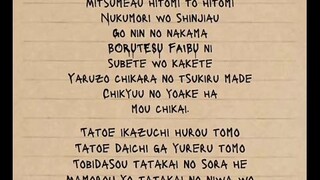 Mitsumeau hitomi to hitomi
Nukumori wo shinjiau
Go nin no nakama
Borutesu Faibu ni
Subete wo kakete
Yaruzo chikara no tsukiru made
Chikyuu no yoake ha
Mou chikai.

Tatoe ikazuchi hurou tomo
Tatoe daichi ga yureru tomo
Tobidasou tatakai no sora he
Mamorou yo tatakai no niwa wo